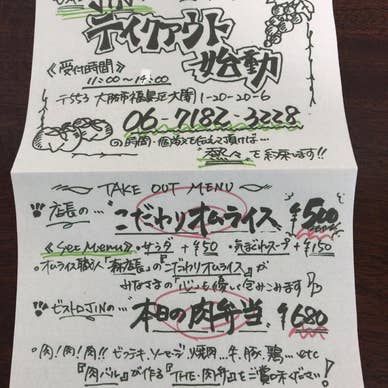 JIN
テイクアウト
始動
《受付時間》
11:00~14:00
〒553 大阪市福島区大開1-20-20-6
06-7182-3228
時間・個数を伝えて頂ければ…
を約束します!!
TAKE OUT MENU
店長の…こだわりオムライス ¥500
《Set Menu》・サラダ +¥50 ・気まぐれスープ +¥150
・オムライス職人「森店長」の『こだわりオムライス』が
みなさまの『心』を優しく包みこみます!
ビストロJINの… 本日の肉弁当 ¥680
・肉!肉!肉!! ビフテキ、ソーセージ、焼肉…牛、豚、鶏…etc
『肉バル』が作る『THE・肉弁』をご賞味ください!